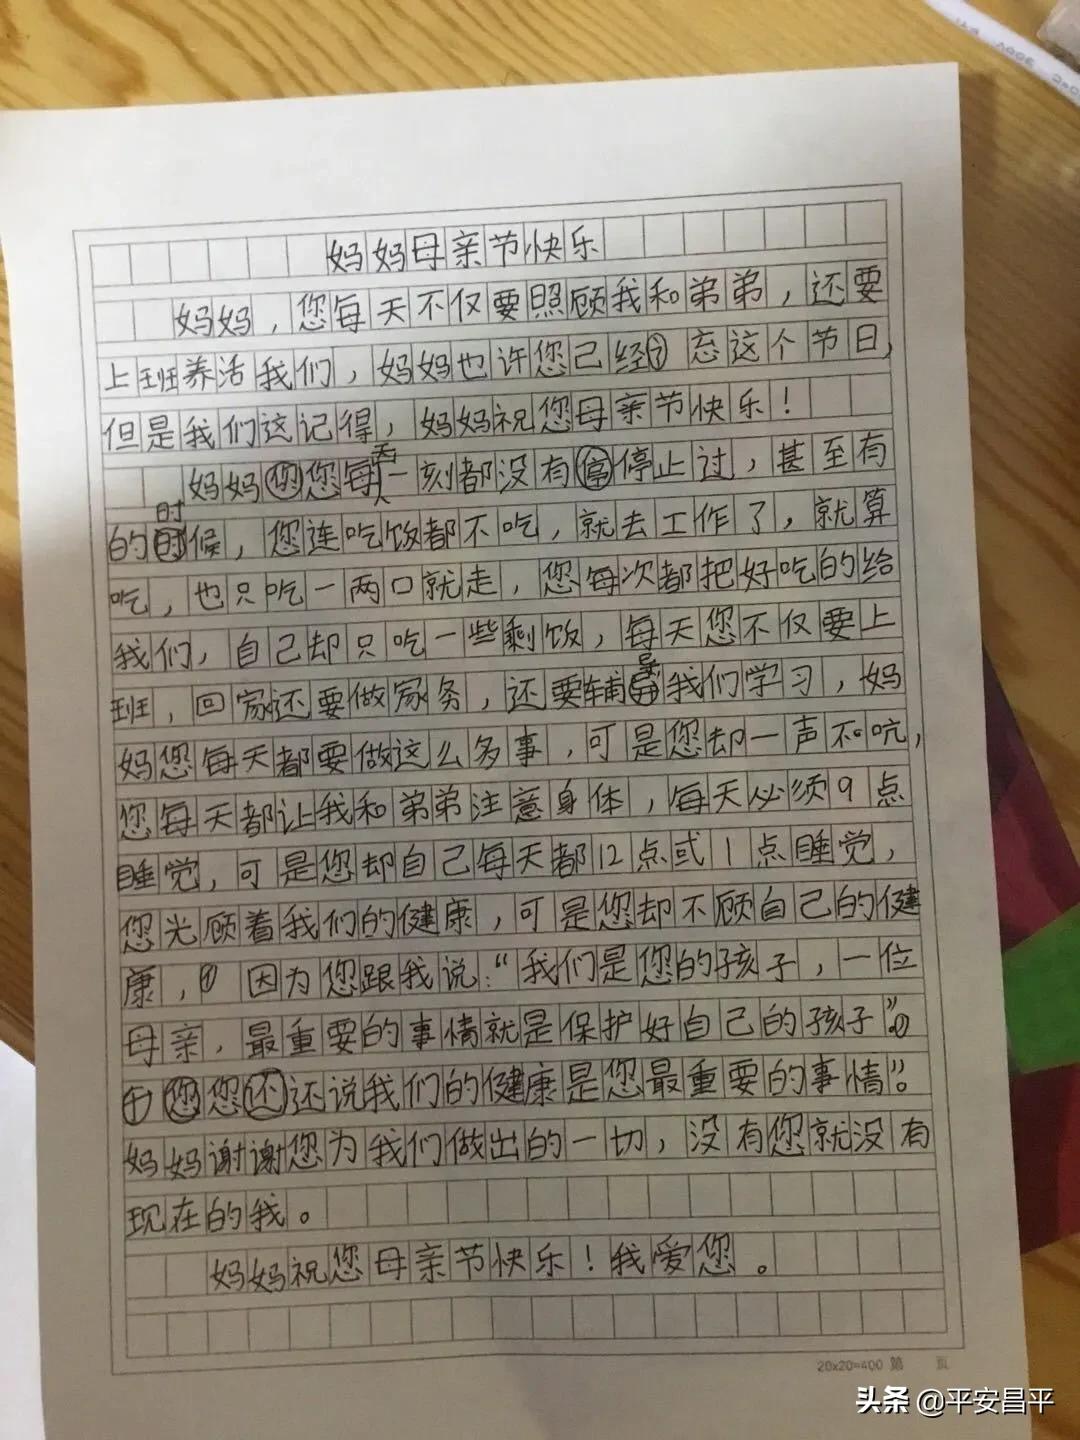 妈妈母亲节快乐
妈妈，您每天不仅要照顾我和弟弟，还要
上班养活我们，妈妈也许您己经忘这个节日，
但是我们这记得，妈妈祝您母亲节快乐！
妈妈您每一刻都没有停止过，甚至有
的时候，您连吃饭都不吃，就去工作了，就算
吃，也只吃一两口就走，您每次都把好吃的给
我们，自己却只吃一些剩饭，每天您不仅要上
班，回家还要做家务，还要辅导我们学习，妈
妈您每天都要做这么多事，可是您却一声不吭，
您每天都让我和弟弟注意身体，每天必须9点
睡觉，可是您却自己每天都12点或1点睡觉，
您光顾着我们的健康，可是您却不顾自己的健
康，因为您跟我说：“我们是您的孩子，一位
母亲，最重要的事情就是保护好自己的孩子”。
您还说我们的健康是您最重要的事情”。
妈妈谢谢您为我们做出的一切，没有您就没有
现在的我。
妈妈祝您母亲节快乐！我爱您。
20x20=400 第 页
头条 @平安昌平